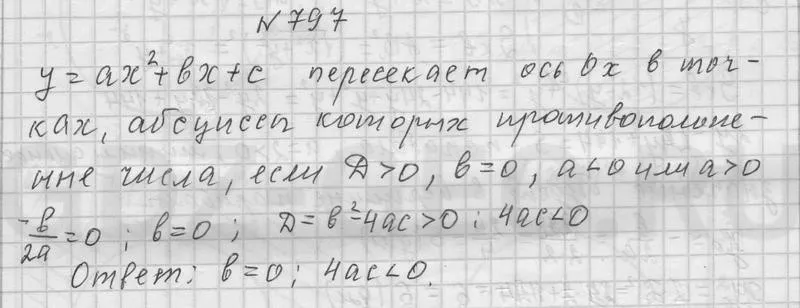 №797
y=ax²+bx+c пересекает ось Ox в точ-
ках, абсциссы которых противополож-
ные числа, если Д>0, b=0, a<0 или a>0
-b/2a=0; b=0; Д=b²-4ac>0; 4ac<0
Ответ: b=0; 4ac<0.